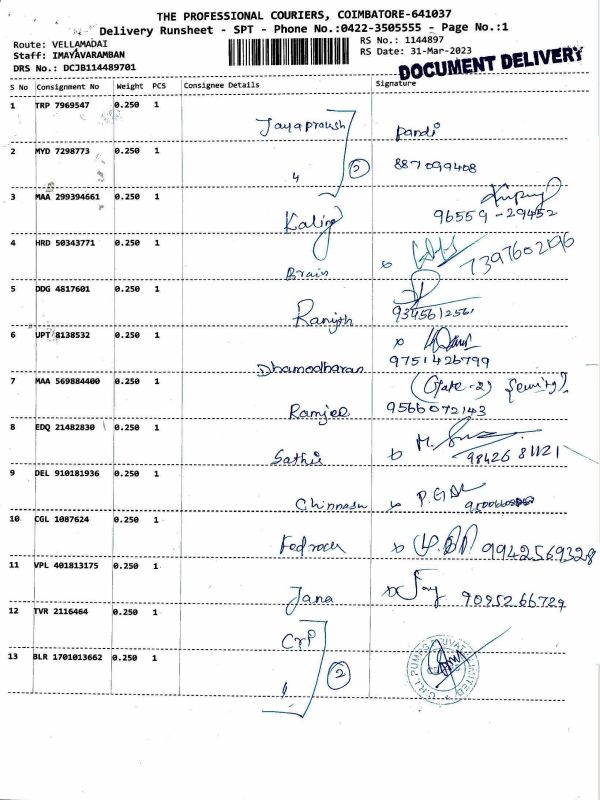 THE PROFESSIONAL COURIERS, COIMBATORE-641037
Delivery Runsheet - SPT - Phone No.:0422-3505555 - Page No.:1
Route: VELLAMADAI
RS No.: 1144897
Staff: IMAYAVARAMBAN
RS Date: 31-Mar-2023
DRS No.: DCJB114489701
DOCUMENT DELIVERY
S No Consignment No Weight PCS Consignee Details Signature
1 TRP 7969547 0.250 1
Jayaprakash Pandi
2 MYD 7298773 0.250 1 887099408
2
3 MAA 299394661 0.250 1
Kaling 96559-29452
4 HRD 50343771 0.250 1 7397602196
Brain
5 DDG 4817601 0.250 1
Ranjith 9345612561
6 UPT 8138532 0.250 1
Dhamodharan 9751426799
7 MAA 569884400 0.250 1 (Gate-2) Security).
Ramjee 9566072143
8 EDQ 21482830 0.250 1
Sathis 98426 81121
9 DEL 910181936 0.250 1
Chinnasu
10 CGL 1087624 0.250 1
Fedrocer 9942569328
11 VPL 401813175 0.250 1
Jana 9095266729
12 TVR 2116464 0.250 1
CrP
13 BLR 1701013662 0.250 1
2
C.R.I. PUMPS PRIVATE LIMITED